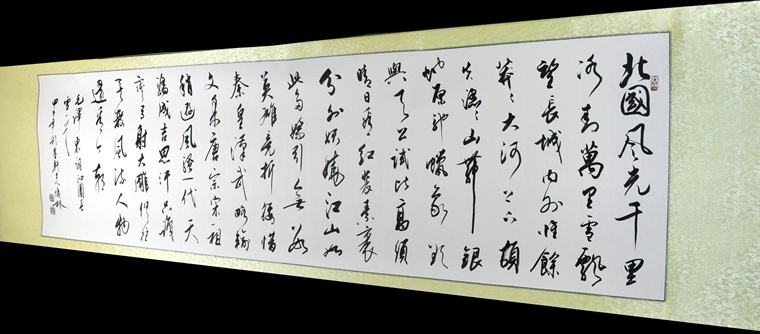 北國风光千里
冰封萬里雪飄
望長城内外惟餘
莽〻大河上下頓
失滔〻山舞銀
蛇原驰蠟象欲
與天公試比高须
晴日看红装素裹
分外妖娆江山如
此多嬌引無数
英雄竞折腰惜
秦皇漢武略输
文采唐宗宋祖
稍逊风骚一代天
骄成吉思汗只識
弯弓射大雕俱往
矣数风流人物
還看今朝
毛泽东词沁園春
雪一首
甲午年